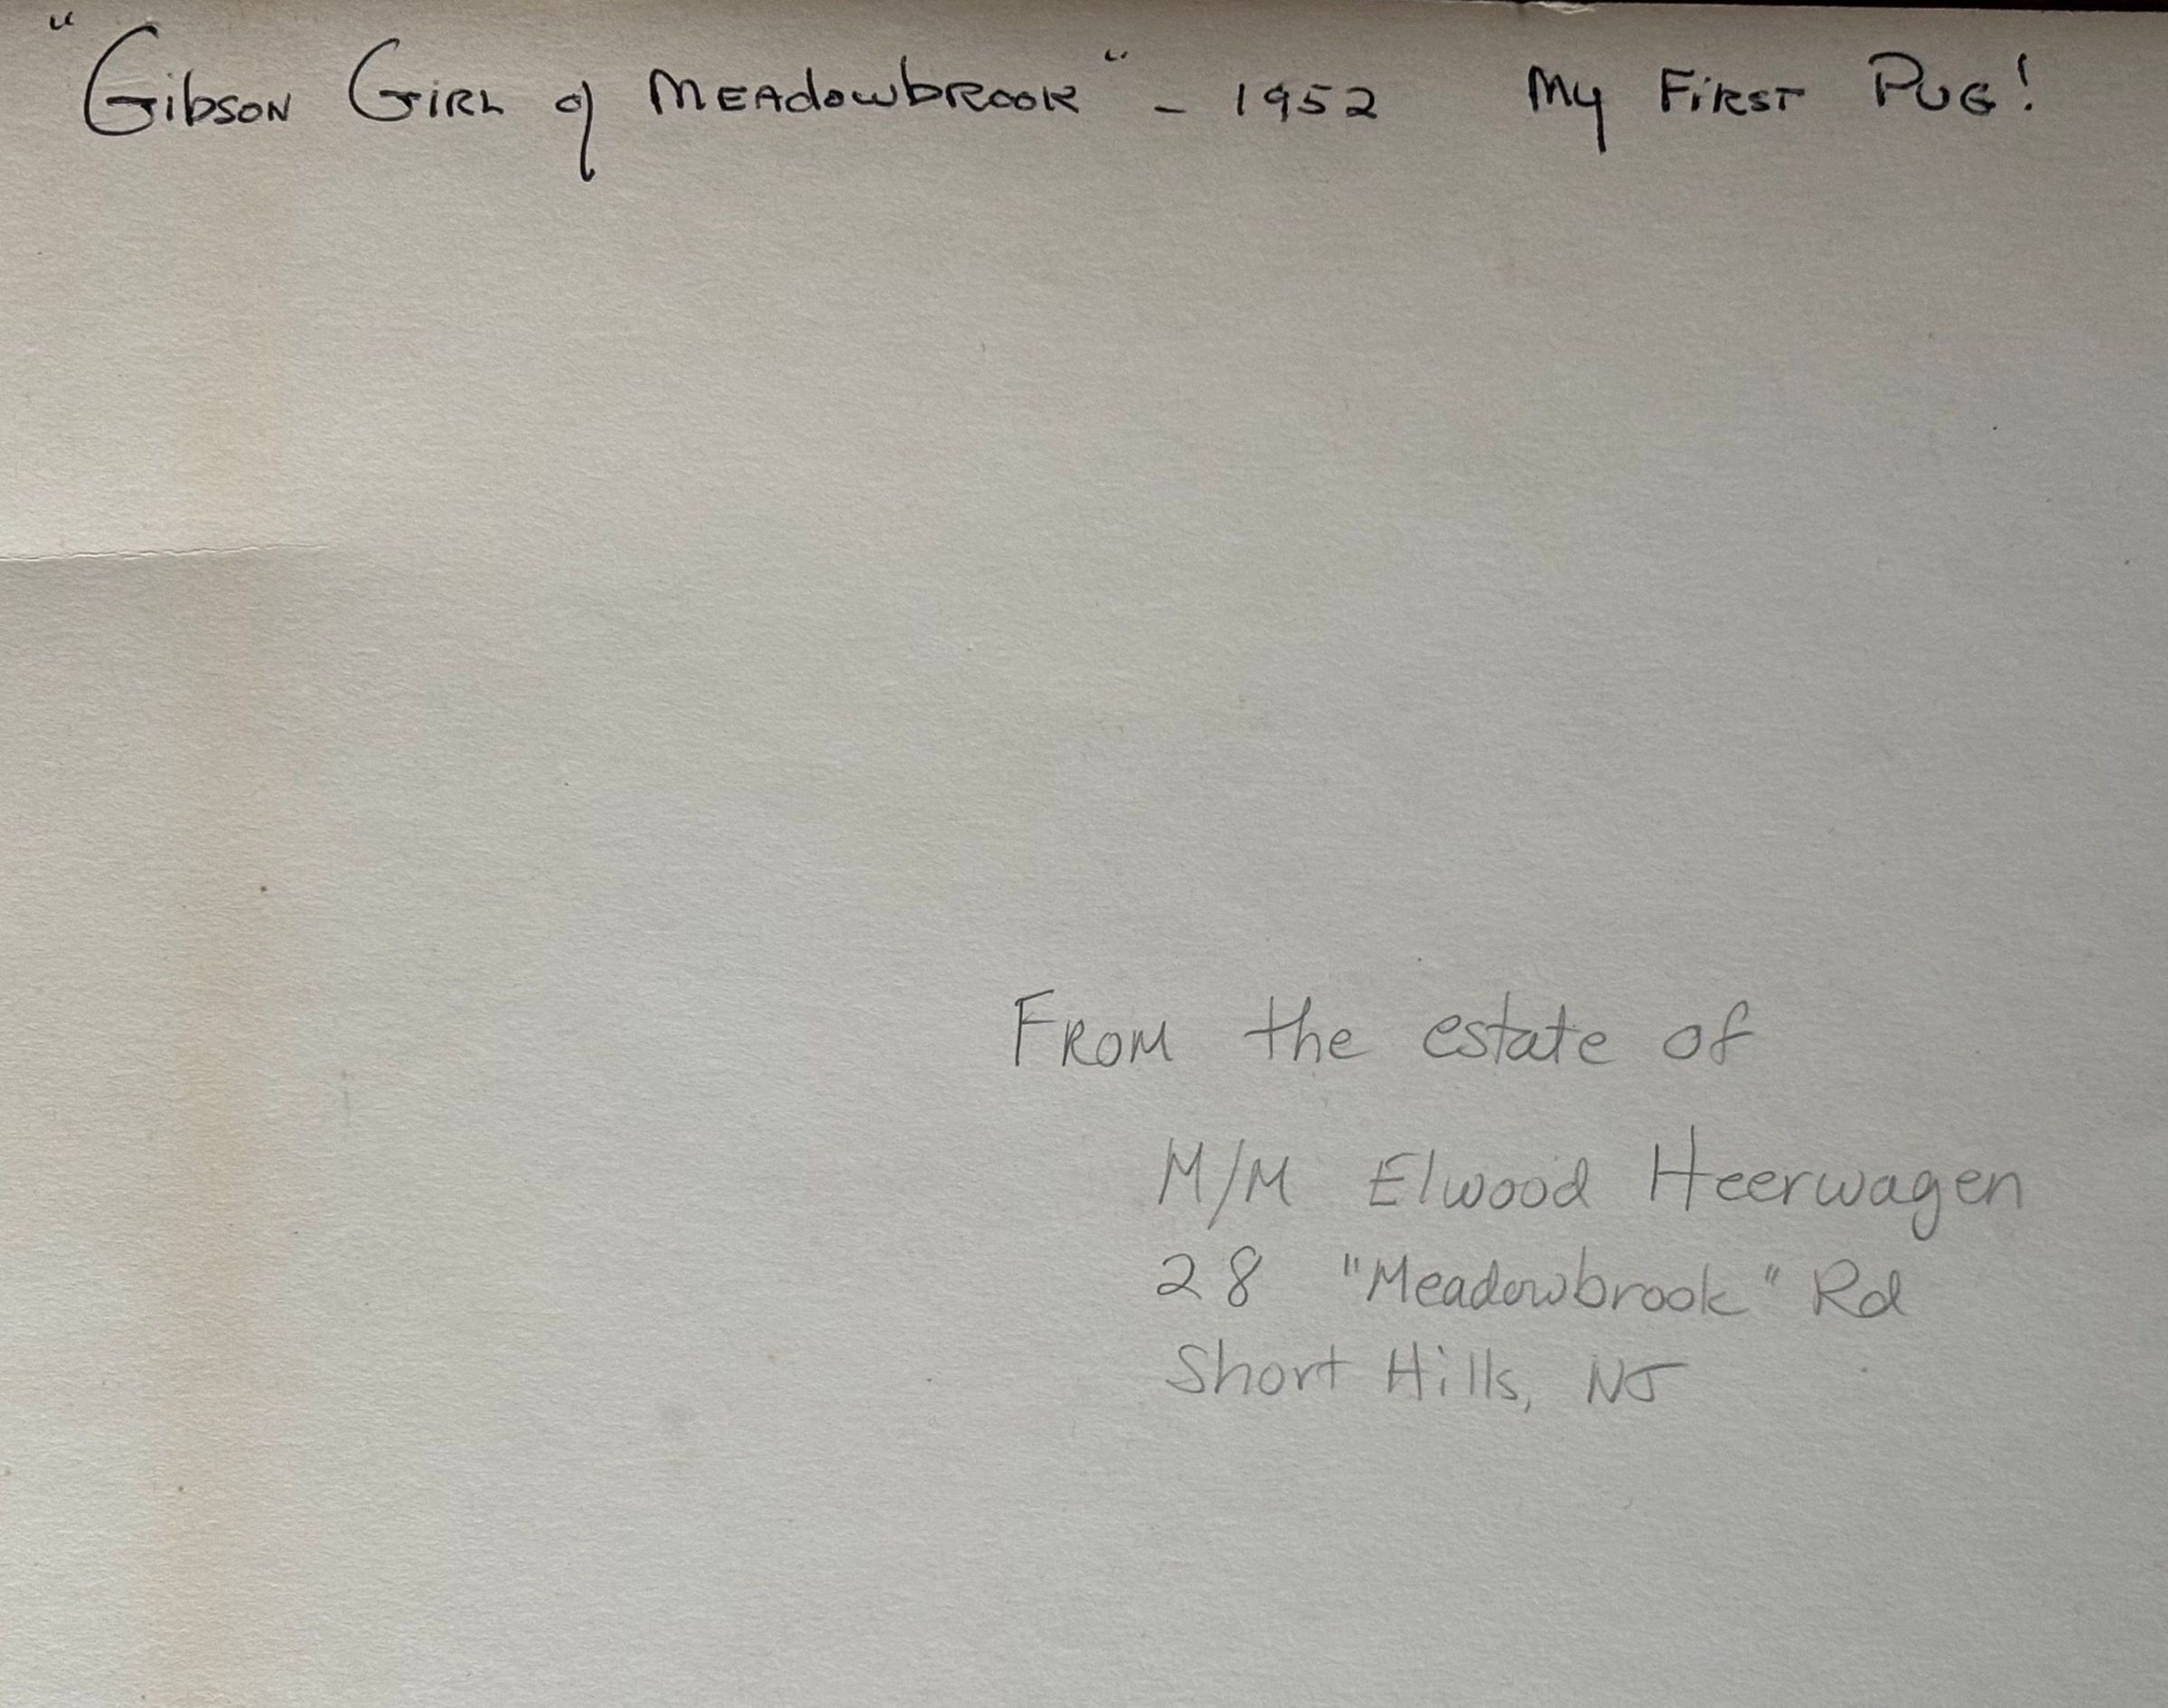 "Gibson Girl of Meadowbrook" - 1952 My First Pug!
From the estate of
M/M Elwood Heerwagen
28 "Meadowbrook" Rd
Short Hills, NJ